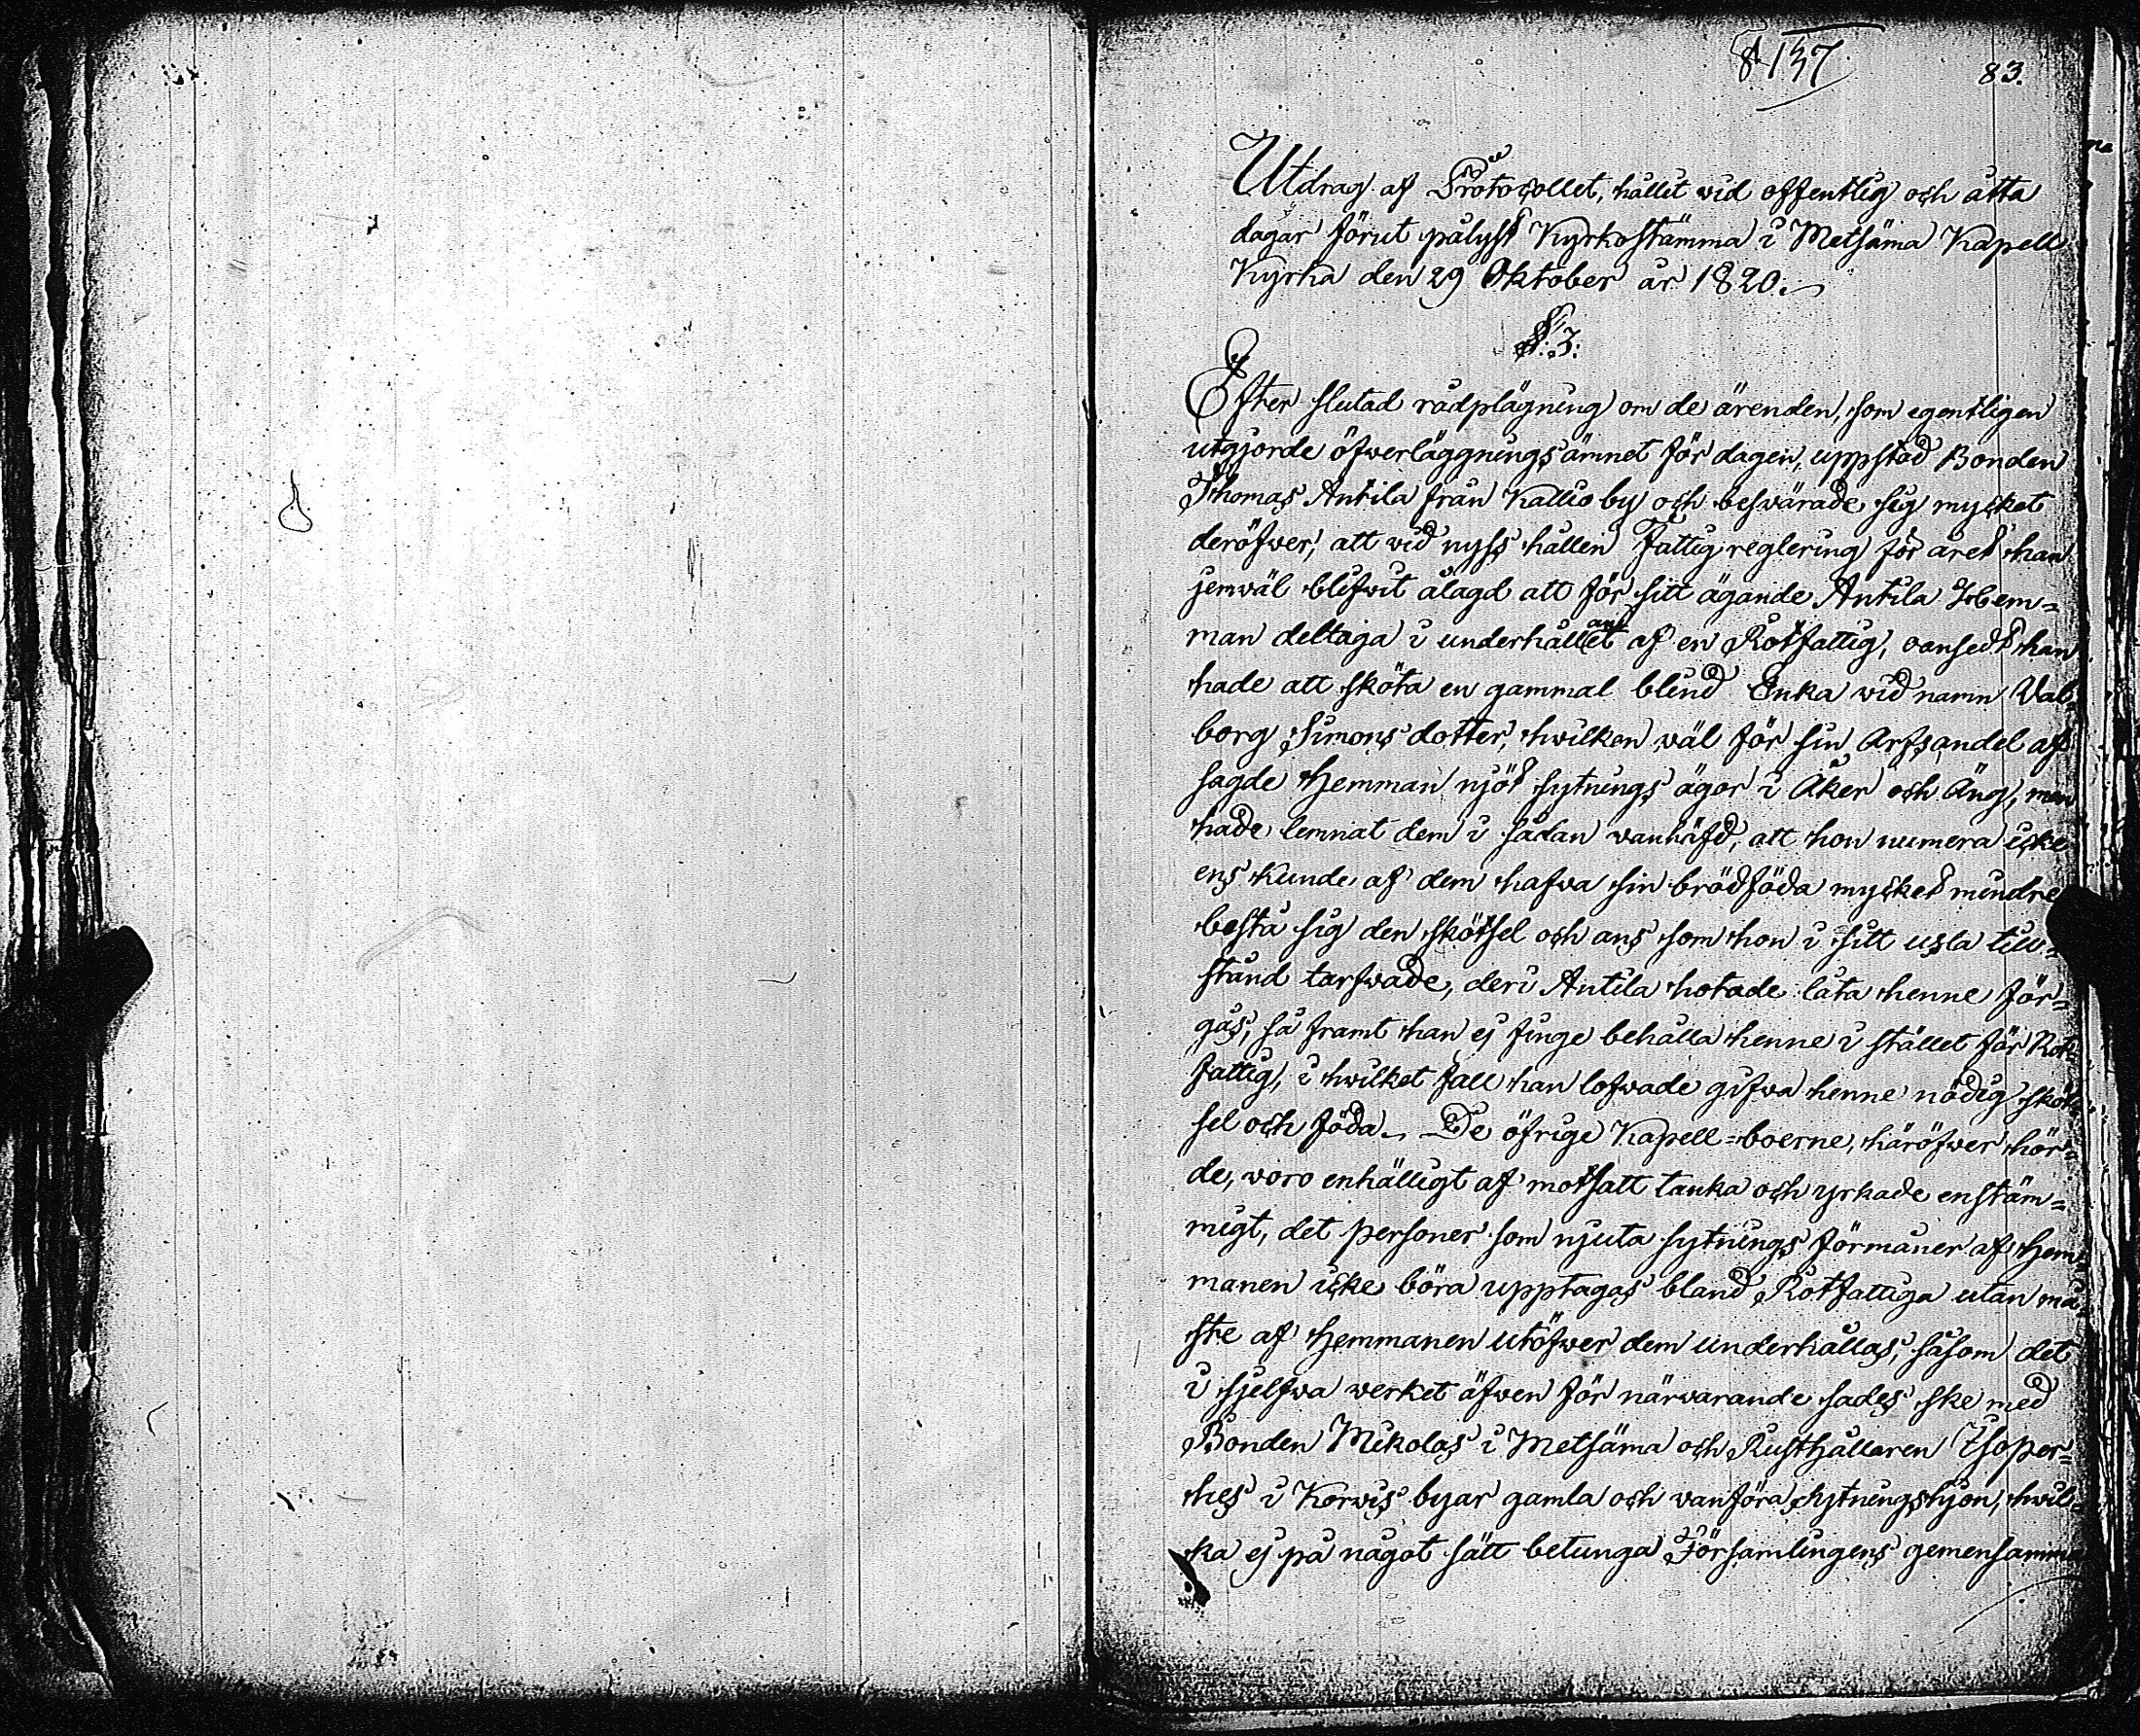 § 137
83.
Utdrag af Protocollet, hållit wid offentlig och åtta
dagar förut pålyst Kyrkostämma i Metsäma Kapell
Kyrka den 29 Oktober år 1820.
§. 3.
Efter slutad rådplägning om de ärenden, som egentligen
utgjorde öfwerläggningsämnet för dagen, uppstod Bonden
Thomas Antila från Kallio by och beswärade sig mycket
deröfwer, att wid nyss hållen Fattigreglering för året han
jemwäl blifwit ålagd att för sitt ägande Antila Hem=
man deltaga i underhållet af en Rotfattig, oansedt han
hade att sköta en gammal blind Enka wid namn Wal=
borg Simonsdotter, hwilken wäl för sin Arfsandel af
sagde Hemman njöt sytnings ägor i Åker och Äng, men
hade lemnat dem i sådan wanhäfd, att hon numera icke
ens kunde af dem hafwa sin brödföda mycket mindre
bestå sig den skötsel och ans som hon i sitt usla till=
stånd tarfwade, deri Antila hotade låta henne för=
gås, så framt han ej finge behålla henne i stället för Rot=
fattig, i hwilket fall han lofwade gifwa henne nödig sköt=
sel och föda. De öfrige Kapell=boerne, häröfwer hör=
de, woro enhälligt af motsatt tanka och yrkade enstäm=
migt, det personer som njuta sytnings förmåner af Hem=
manen icke böra upptagas bland Rotfattiga utan må=
ste af Hemmanen utöfwer dem underhållas, såsom det
i sjelfwa werket äfwen för närwarande sades ske med
Bonden Mikolas i Metsäma och Rusthållaren Isoper=
hes i Korwis byar gamla och wanföra sytningshjon, hwil=
ka ej på något sätt betunga Församlingens gemensamma